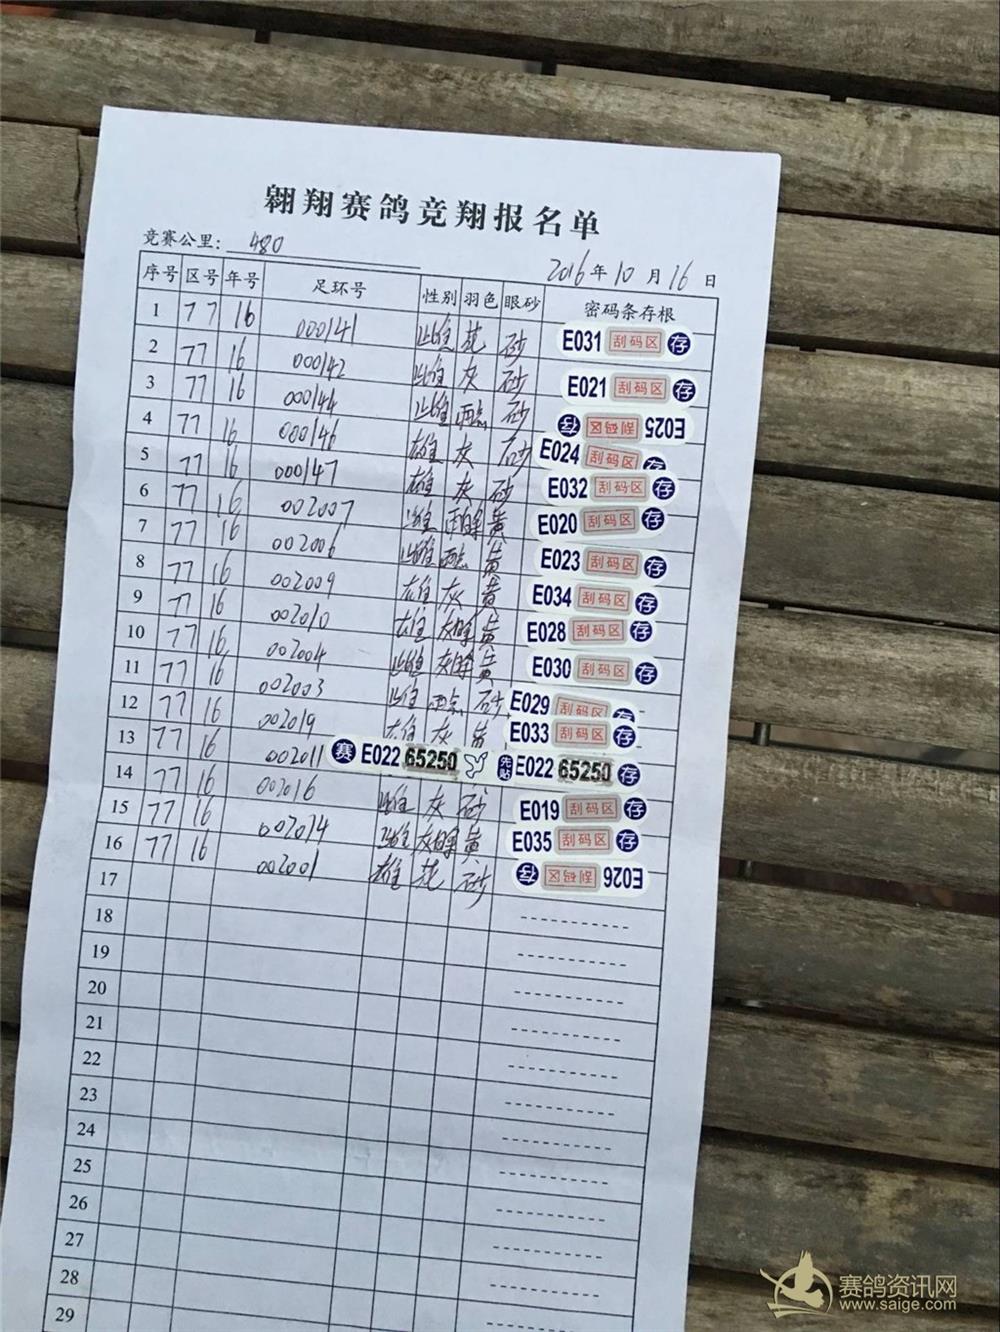 翱翔赛鸽竞翔报名单
竞赛公里: 480
2016年10月16日
序号 区号 年号 足环号 性别 羽色 眼砂 密码条存根
1 77 16 000141 雌 花 砂 E031 刮码区 存
2 77 16 000142 雌 灰 砂 E021 刮码区 存
3 77 16 000144 雌 雨点 砂 E025 刮码区 存
4 77 16 000146 雄 灰 砂 E024 刮码区 存
5 77 16 000147 雄 灰 砂 E032 刮码区 存
6 77 16 002007 雌 雨白条 黄 E020 刮码区 存
7 77 16 002006 雌 雨点 黄 E023 刮码区 存
8 77 16 002009 雄 灰 黄 E034 刮码区 存
9 77 16 002010 雄 灰白条 黄 E028 刮码区 存
10 77 16 002004 雌 灰白条 黄 E030 刮码区 存
11 77 16 002003 雌 雨点 砂 E029 刮码区 存
12 77 16 002019 雄 灰 黄 E033 刮码区 存
13 77 16 002011 赛 E022 65250 先站 E022 65250 存
14 77 16 002016 雌 灰 砂 E019 刮码区 存
15 77 16 雌 灰白条 黄 E035 刮码区 存
16 77 16 002001 雄 花 砂 E026 刮码区 存
17
18
19
20
21
22
23
24
25
26
27
28
29
赛鸽资讯网
www.saige.com